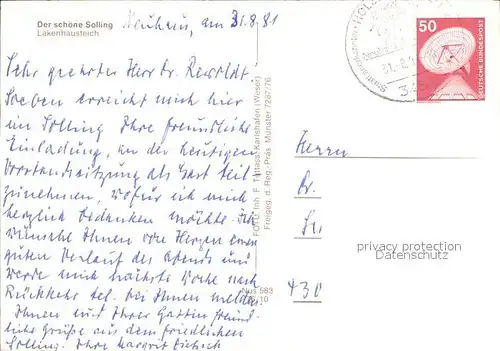 Der schöne Solling
Lakenhausteich
Neuhaus, am 31.8.81
Sehr geehrter Herr Dr.
Soeben erreicht mich hier
im Solling Ihre freundliche
Einladung, an der heutigen
Vorstandssitzung als Gast teil
zunehmen, wofür ich mich
herzlich bedanken möchte. Ich
wünsche Ihnen von Herzen einen
guten Verlauf des Abends und
werde mich nächste Woche nach
Rückkehr tel. bei Ihnen melden.
Ihnen und Ihrer Gattin freund
liche Grüße aus dem friedlichen
Solling. Ihre Margrit
FOTO Inh. F. Tattass, Karlshafen (Weser)
Freigeg. d. Reg.-Präs. Münster 7297/76
Nus 583
/10
50
DEUTSCHE BUNDESPOST
Herrn
Dr.
430
privacy protection
Datenschutz